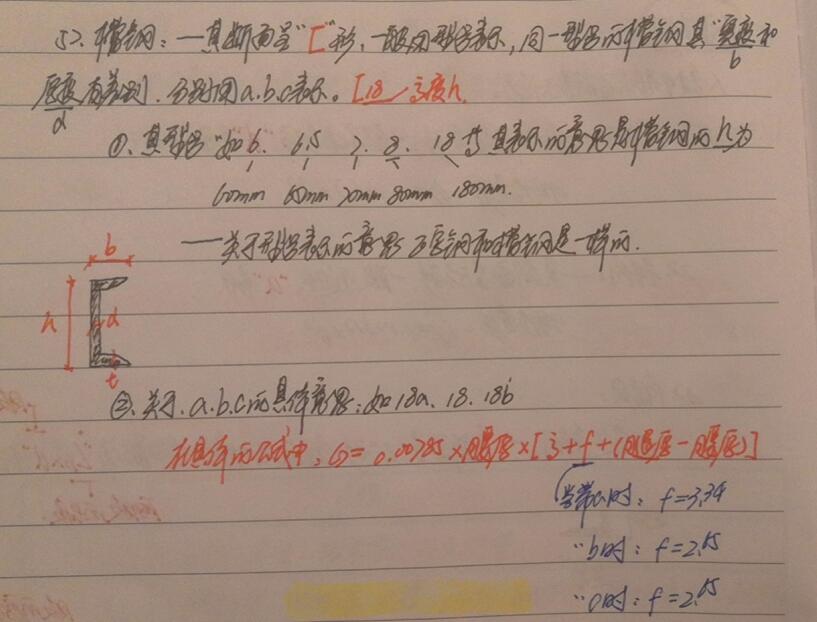 52、槽钢:—其断面呈"["形,一般用型号表示,同一型号的槽钢其"宽度和
b
厚度有差别,分别用a.b.c表示。[18 高度h.
d
①、其型号"如6、6.5 7、8、18等其表示的意思是槽钢的h为
60mm 65mm 70mm 80mm 180mm.
——关于型号表示的意思 工字钢和槽钢是一样的.
b
h
d
t
②、关于、a.b.c的具体意思:如18a、18、18b
在具体的公式中,G=0.00785×腰厚×[高+f+(腿厚-腰厚)]
当带a时:f=3.34
〃b时:f=2.65
〃c时:f=2.65